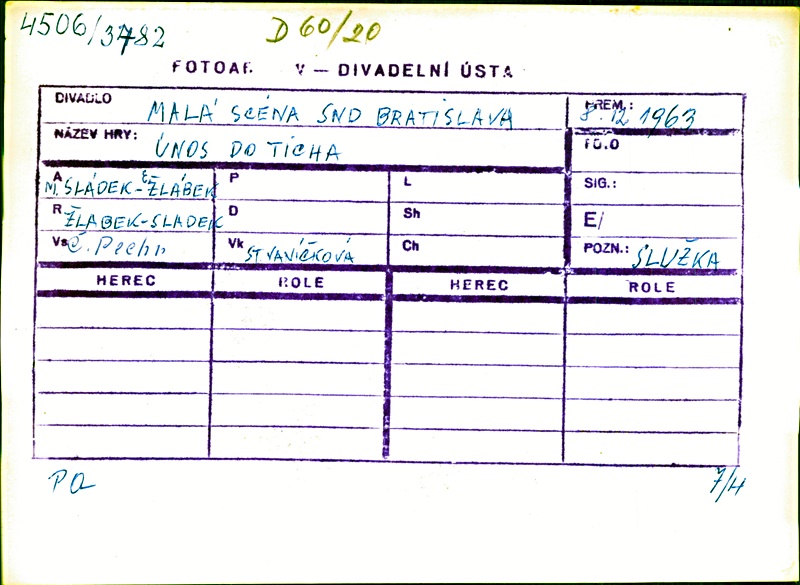 4506/3782
D 60/20
FOTOAR. V — DIVADELNÍ ÚSTA
DIVADLO MALÁ SCÉNA SND BRATISLAVA
PREM.: 8.12 1963
NÁZEV HRY: ÚNOS DO TICHA
FO.O
A M. SLÁDEK-E. ŽLÁBEK
P
L
SIG.:
R ŽLABEK-SLADEK
D
Sh
E/
Vs
Vk
Ch
POZN.: SLUŽKA
HEREC ROLE HEREC ROLE
7/H